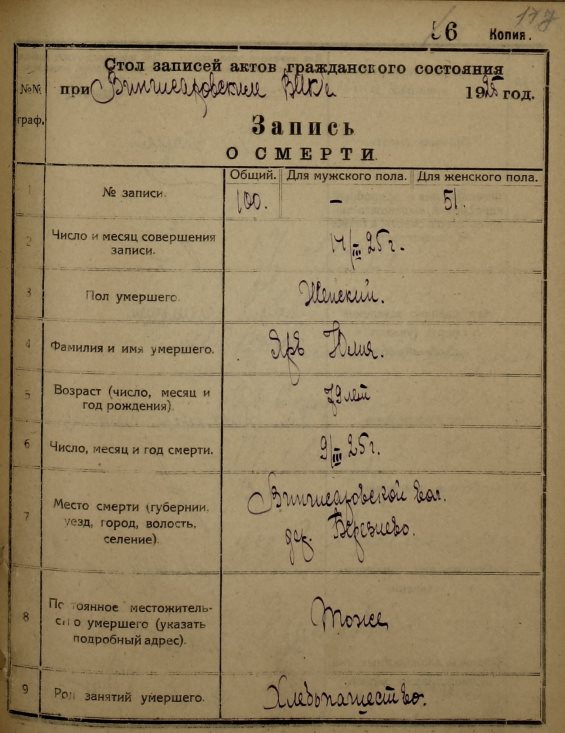 56 Копия. 117
Стол записей актов гражданского состояния
при Вингисаровским ВИК'е 1925 год.
№№ граф.
Запись
О СМЕРТИ.
Общий. Для мужского пола. Для женского пола.
1 № записи. 100. — 51.
2 Число и месяц совершения
записи. 14/III 25 г.
3 Пол умершего. Женский.
4 Фамилия и имя умершего. Ярв Юлия.
5 Возраст (число, месяц и
год рождения). 79 лет
6 Число, месяц и год смерти. 9/III 25 г.
7 Место смерти (губернии,
уезд, город, волость,
селение). Вингисаровской вол.
дер. Березнево.
8 Постоянное местожитель-
ство умершего (указать
подробный адрес). Тоже
9 Род занятий умершего. Хлебопашество.